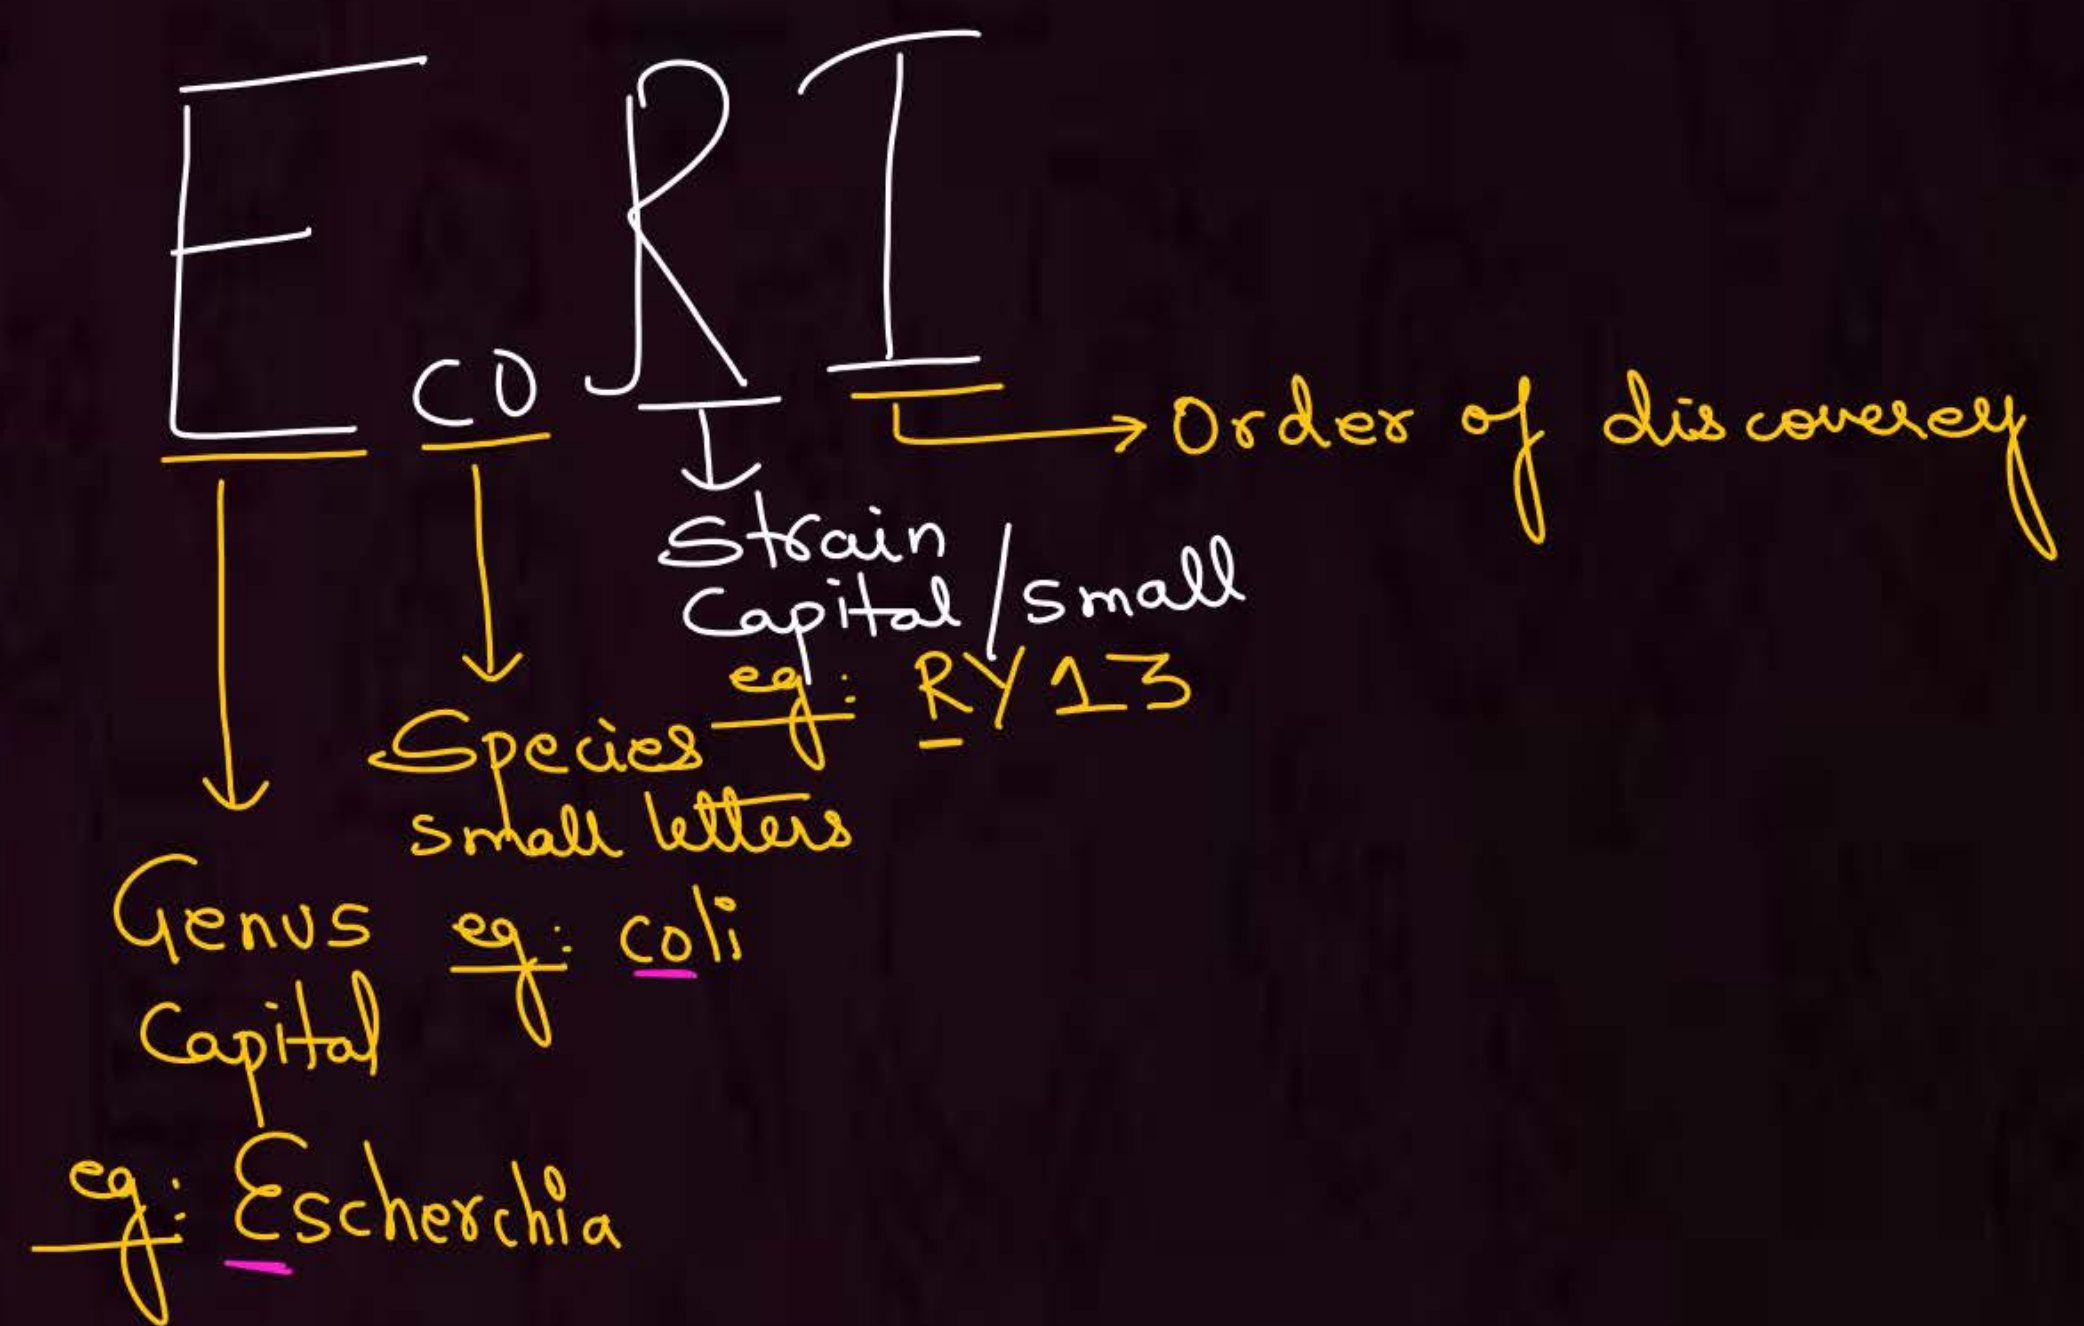 E co R I
Order of discoverey
Strain
Capital / small
eg: RY13
Species
small letters
eg: coli
Genus
Capital
eg: Escherchia